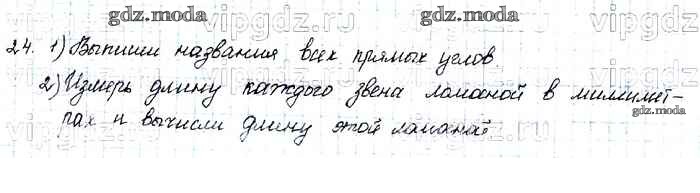 gdz.moda gdz.moda gdz.moda
vipgdz vipgdz vipgdz
24. 1) Выпиши названия всех прямых углов
2) Измерь длину каждого звена ломаной в миллимет-
рах и вычисли длину этой ломаной
gdz.moda